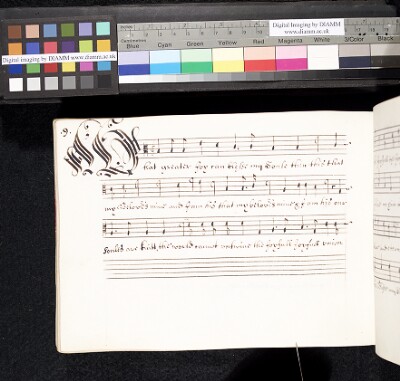 Digital Imaging by DIAMM
www.diamm.ac.uk
Blue Cyan Green Yellow Red Magenta White 3/Color Black
Digital Imaging by DIAMM www.diamm.ac.uk
9.
What greater Joy can the my Soule then this that
my beloveds mine and I am his that my beloveds mine & I am his our
soules one the world cannot the joyfull joyfull union